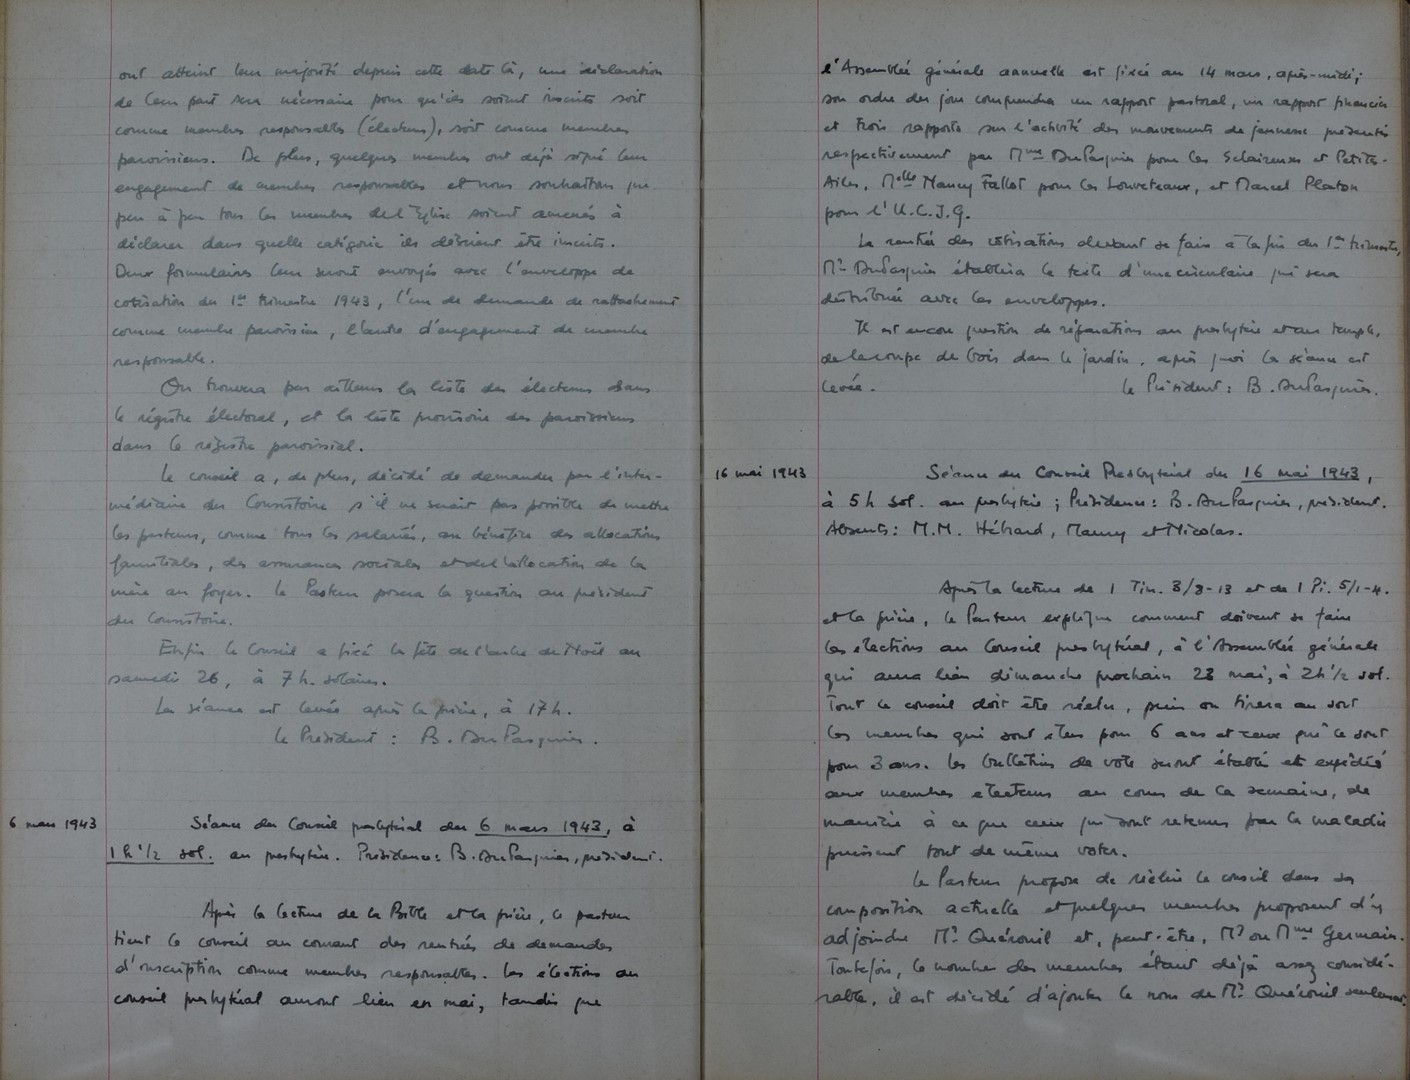 ont atteint leur majorité depuis cette date là, une déclaration
de leur part sera nécessaire pour qu'ils soient inscrits soit
comme membres responsables (électeurs), soit comme membres
paroissiens. De plus, quelques membres ont déjà signé leur
engagement de membres responsables et nous souhaitons que
peu à peu tous les membres de l'Eglise soient amenés à
déclarer dans quelle catégorie ils désirent être inscrits.
Deux formulaires leur seront envoyés avec l'enveloppe de
cotisation du 1er trimestre 1943, l'un de demande de rattachement
comme membre paroissien, l'autre d'engagement de membre
responsable.
On trouvera par ailleurs la liste des électeurs dans
le régistre électoral, et la liste provisoire des paroissiens
dans le régistre paroissial.
Le conseil a, de plus, décidé de demander par l'inter-
médiaire du Consistoire s'il ne serait pas possible de mettre
les pasteurs, comme tous les salariés, au bénéfice des allocations
familiales, des assurances sociales et de l'allocation de la
mère au foyer. Le Pasteur posera la question au président
du Consistoire.
Enfin le Conseil a fixé la fête de l'arbre de Noël au
samedi 26, à 7 h. solaires.
La séance est levée après la prière, à 17 h.
Le Président : B. DuPasquier.
6 mars 1943
Séance du Conseil presbytéral du 6 mars 1943, à
1 h 1/2 sol. au presbytère. Présidence: B. DuPasquier, président.
Après la lecture de la Bible et la prière, le pasteur
tient le conseil au courant des rentrées de demandes
d'inscription comme membres responsables. Les élections au
conseil presbytéral auront lieu en mai, tandis que
l'Assemblée générale annuelle est fixée au 14 mars, après-midi;
son ordre du jour comprendra un rapport pastoral, un rapport financier
et trois rapports sur l'activité des mouvements de jeunesse présentés
respectivement par Mme DuPasquier pour les Eclaireuses et Petites-
Ailes, Melle Nancy Fallot pour les Louveteaux, et Marcel Platon
pour l'U.C.J.G.
La rentrée des cotisations devant se faire à la fin du 1er trimestre,
Mr DuPasquier établira le texte d'une circulaire qui sera
distribuée avec les enveloppes.
Il est encore question de réparations au presbytère et au temple,
de la coupe de bois dans le jardin, après quoi la séance est
levée. Le Président : B. DuPasquier.
16 mai 1943
Séance du Conseil Presbytéral du 16 mai 1943,
à 5 h sol. au presbytère ; Présidence: B. DuPasquier, président.
Absents: M.M. Hébrard, Maury et Nicolas.
Après la lecture de 1 Tim. 3/8-13 et de 1 Pi. 5/1-4.
et la prière, le Pasteur explique comment doivent se faire
les élections au Conseil presbytéral, à l'Assemblée générale
qui aura lieu dimanche prochain 23 mai, à 2 h 1/2 sol.
Tout le conseil doit être réélu, puis on tirera au sort
les membres qui sont élus pour 6 ans et ceux qui le sont
pour 3 ans. Les bulletins de vote seront établis et expédiés
aux membres électeurs au cours de la semaine, de
manière à ce que ceux qui sont retenus par la maladie
puissent tout de même voter.
Le Pasteur propose de réélire le conseil dans sa
composition actuelle et quelques membres proposent d'y
adjoindre Mr. Quérouil et, peut-être, Mr ou Mme Germain.
Toutefois, le nombre des membres étant déjà assez considé-
rable, il est décidé d'ajouter le nom de Mr. Quérouil seulement.